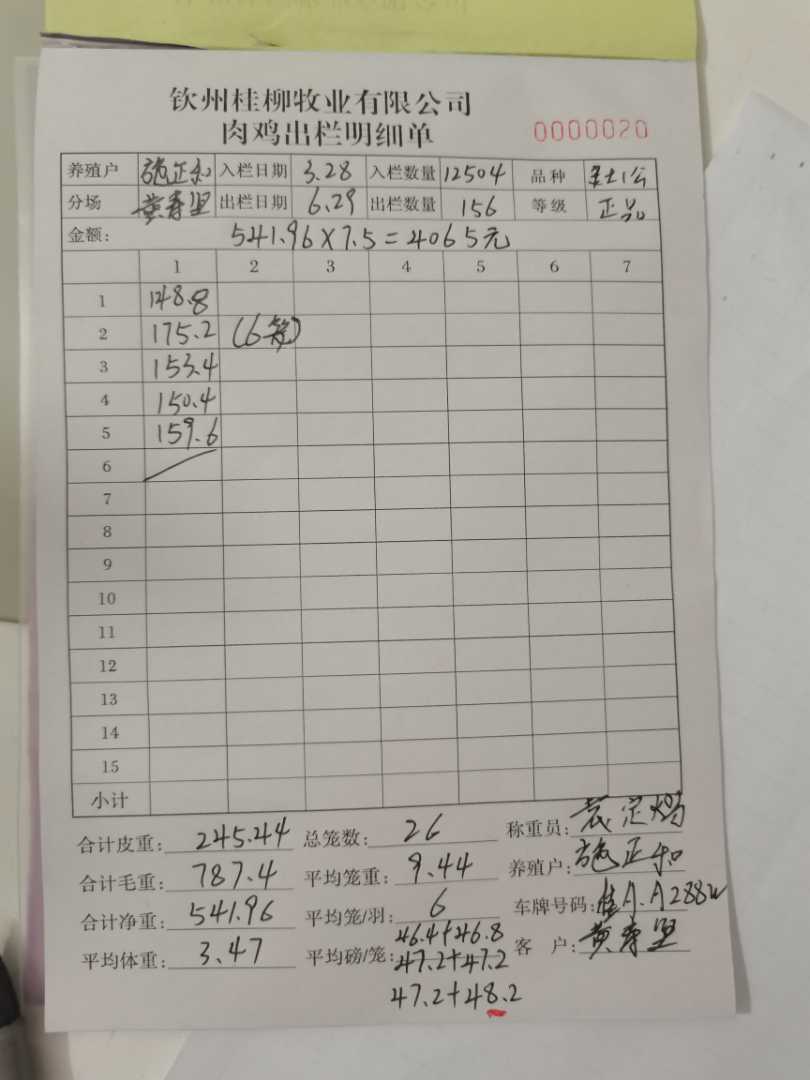 钦州桂柳牧业有限公司
肉鸡出栏明细单 0000020
养殖户 施正和 入栏日期 3.28 入栏数量 12504 品种
分场 黄寿里 出栏日期 6.29 出栏数量 156 等级 正品
金额: 541.96×7.5=4065元
1 2 3 4 5 6 7
1 148.8
2 175.2 (6笼)
3 153.4
4 150.4
5 159.6
6
7
8
9
10
11
12
13
14
15
小计
合计皮重: 245.44 总笼数: 26 称重员:
合计毛重: 787.4 平均笼重: 9.44 养殖户: 施正和
合计净重: 541.96 平均笼/羽: 6 车牌号码: 桂A.A288W
平均体重: 3.47 平均磅/笼: 46.4+46.8 客 户: 黄寿里
47.2+47.2
47.2+48.2